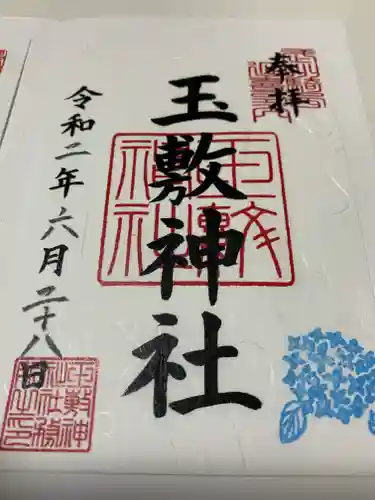 奉拝
玉敷神社
令和二年六月二十八日
玉敷神社
玉敷神社社務之印